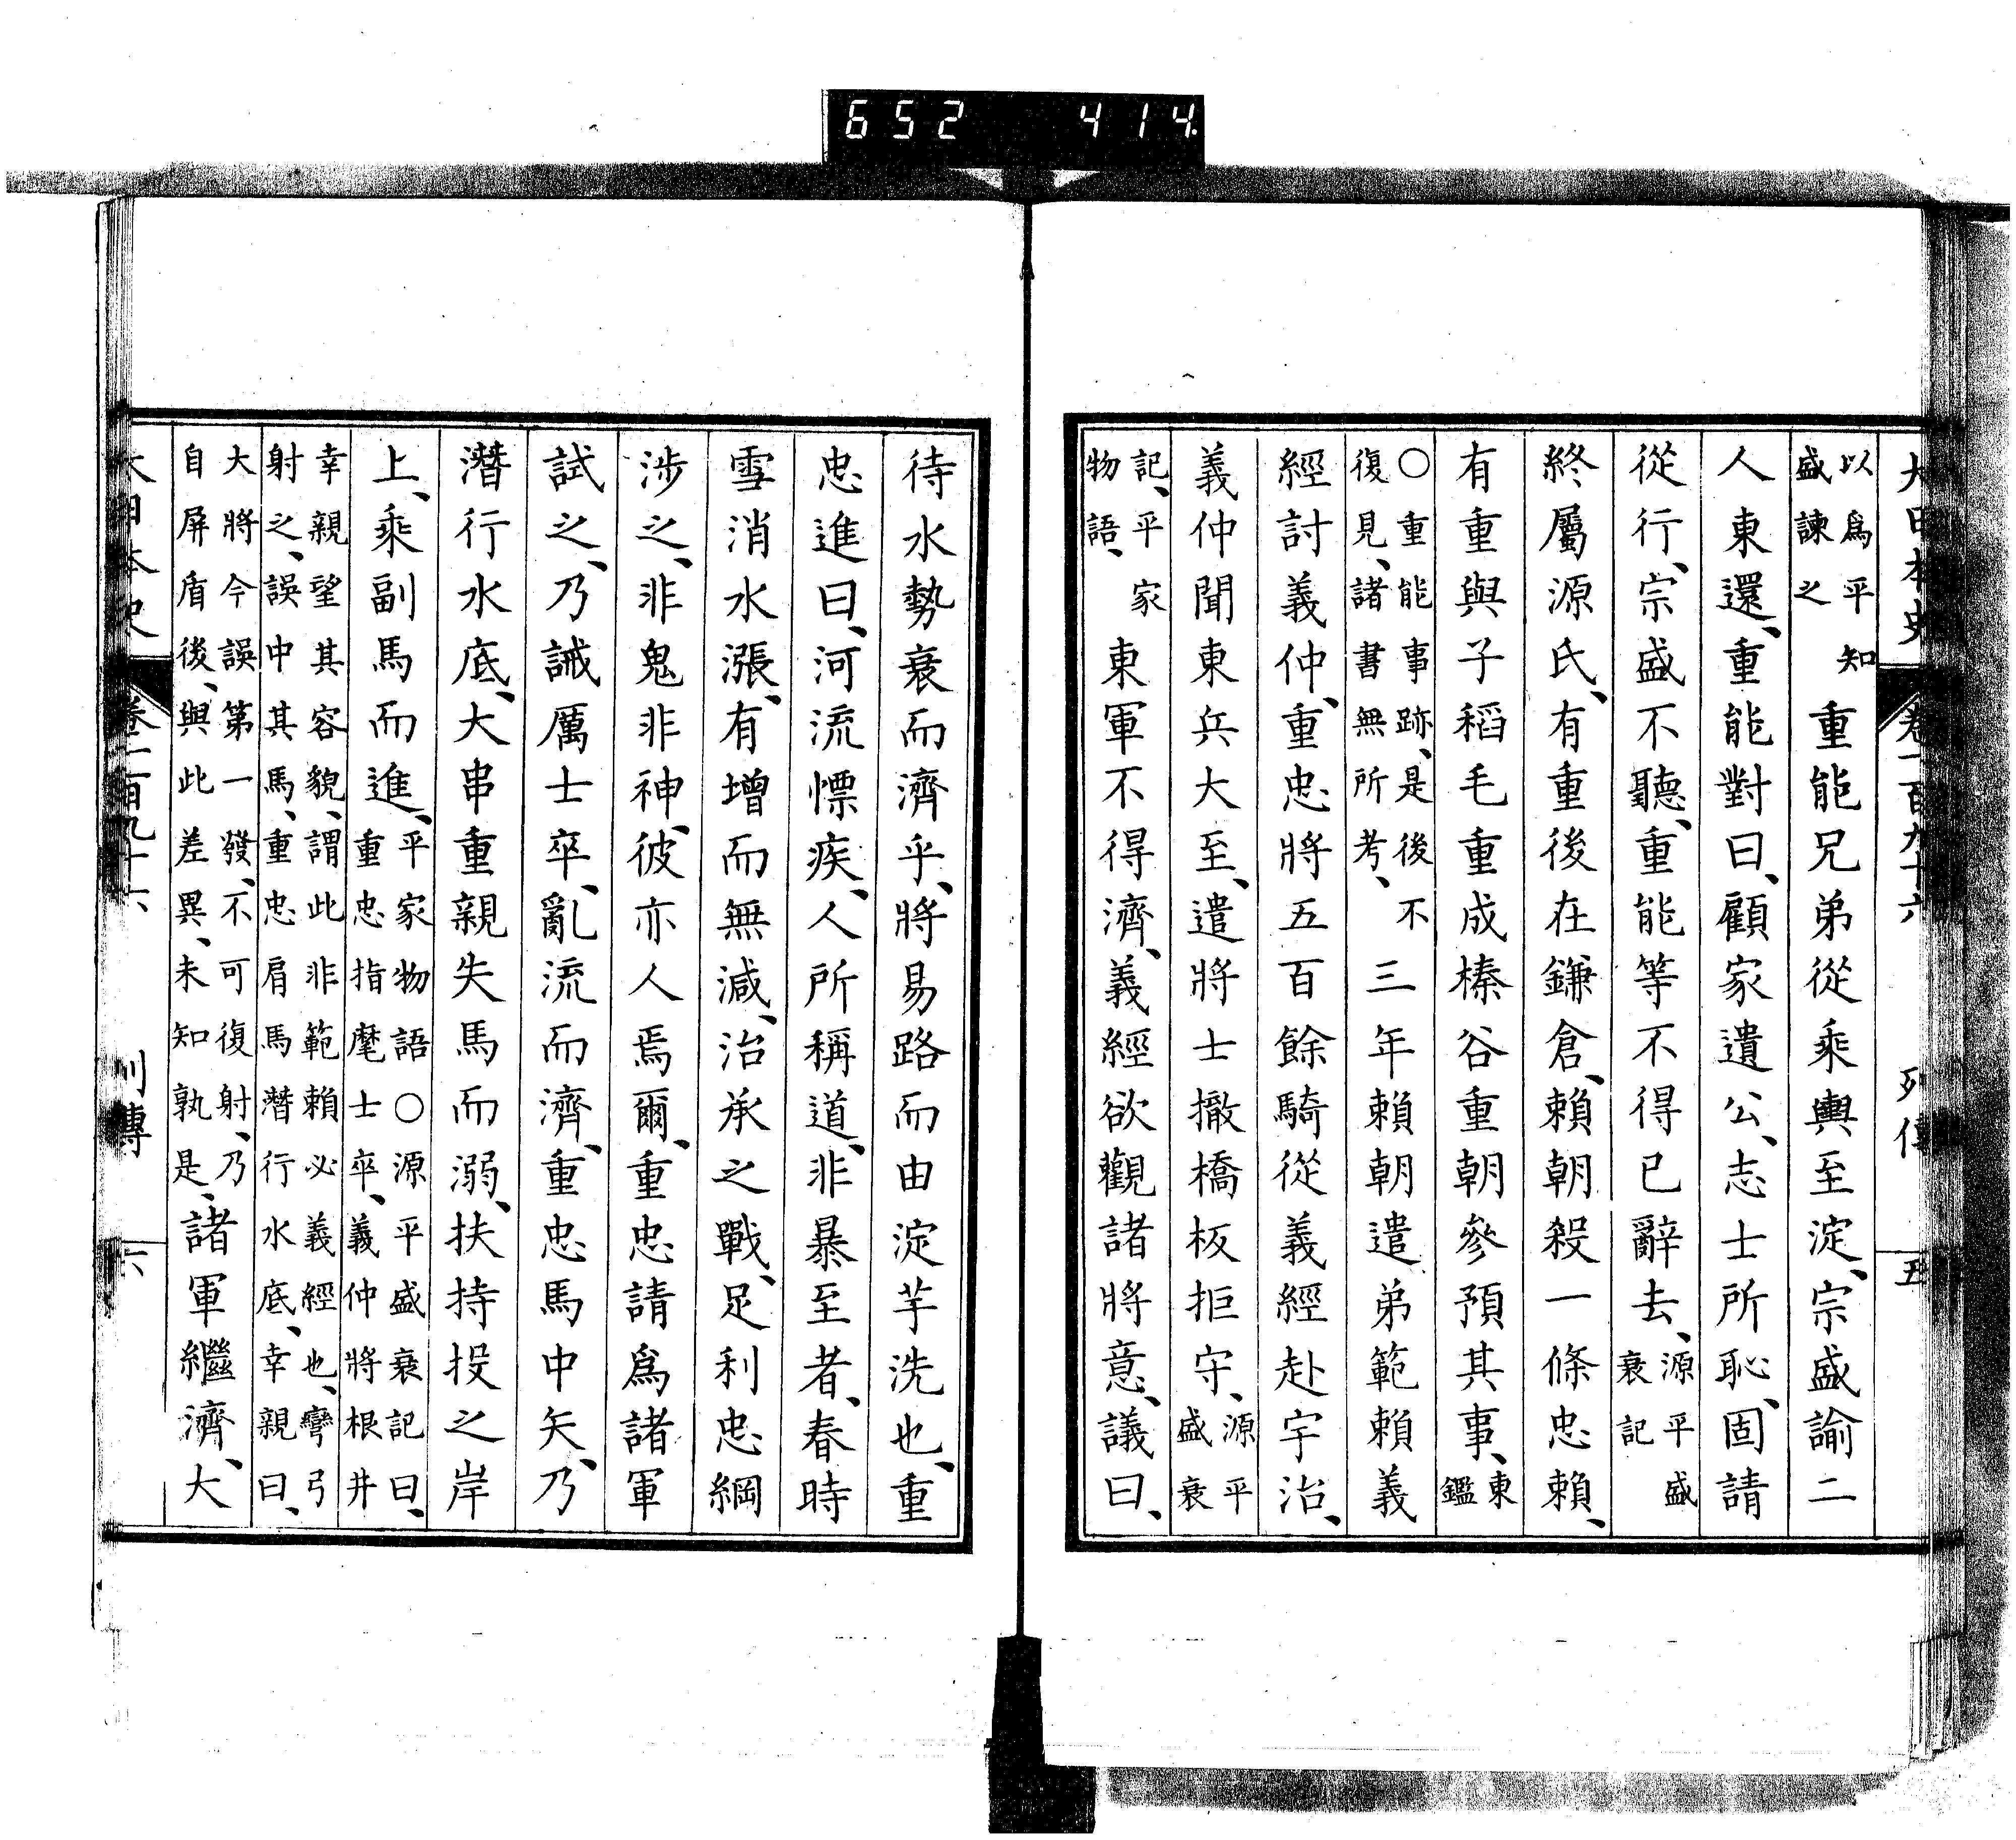 652 414.
大日本史 卷一百九十六 列傳 五
以爲平知盛諫之重能兄弟從乘輿至淀、宗盛諭二
人東還、重能對曰、顧家遺公、志士所恥、固請
從行、宗盛不聽、重能等不得已辭去、源平盛衰記
終屬源氏、有重後在鎌倉、賴朝殺一條忠賴、
有重與子稻毛重成榛谷重朝參預其事、東鑑
○重能事跡、是後不復見、諸書無所考、三年賴朝遣弟範賴義
經討義仲、重忠將五百餘騎從義經赴宇治、
義仲聞東兵大至、遣將士撤橋板拒守、源平盛衰
記、平家物語、東軍不得濟、義經欲觀諸將意、議曰、
待水勢衰而濟乎、將易路而由淀芋洗也、重
忠進曰、河流慓疾、人所稱道、非暴至者、春時
雪消水漲、有增而無減、治承之戰、足利忠綱
涉之、非鬼非神、彼亦人焉爾、重忠請爲諸軍
試之、乃誡厲士卒、亂流而濟、重忠馬中矢、乃
潛行水底、大串重親失馬而溺、扶持投之岸
上、乘副馬而進、平家物語○源平盛衰記曰、重忠指麾士卒、義仲將根井
幸親望其容貌、謂此非範賴必義經也、彎弓射之、誤中其馬、重忠肩馬潛行水底、幸親曰、
大將今誤第一發、不可復射、乃自屏盾後、與此差異、未知孰是、諸軍繼濟、大
大日本史 卷一百九十六 列傳 六